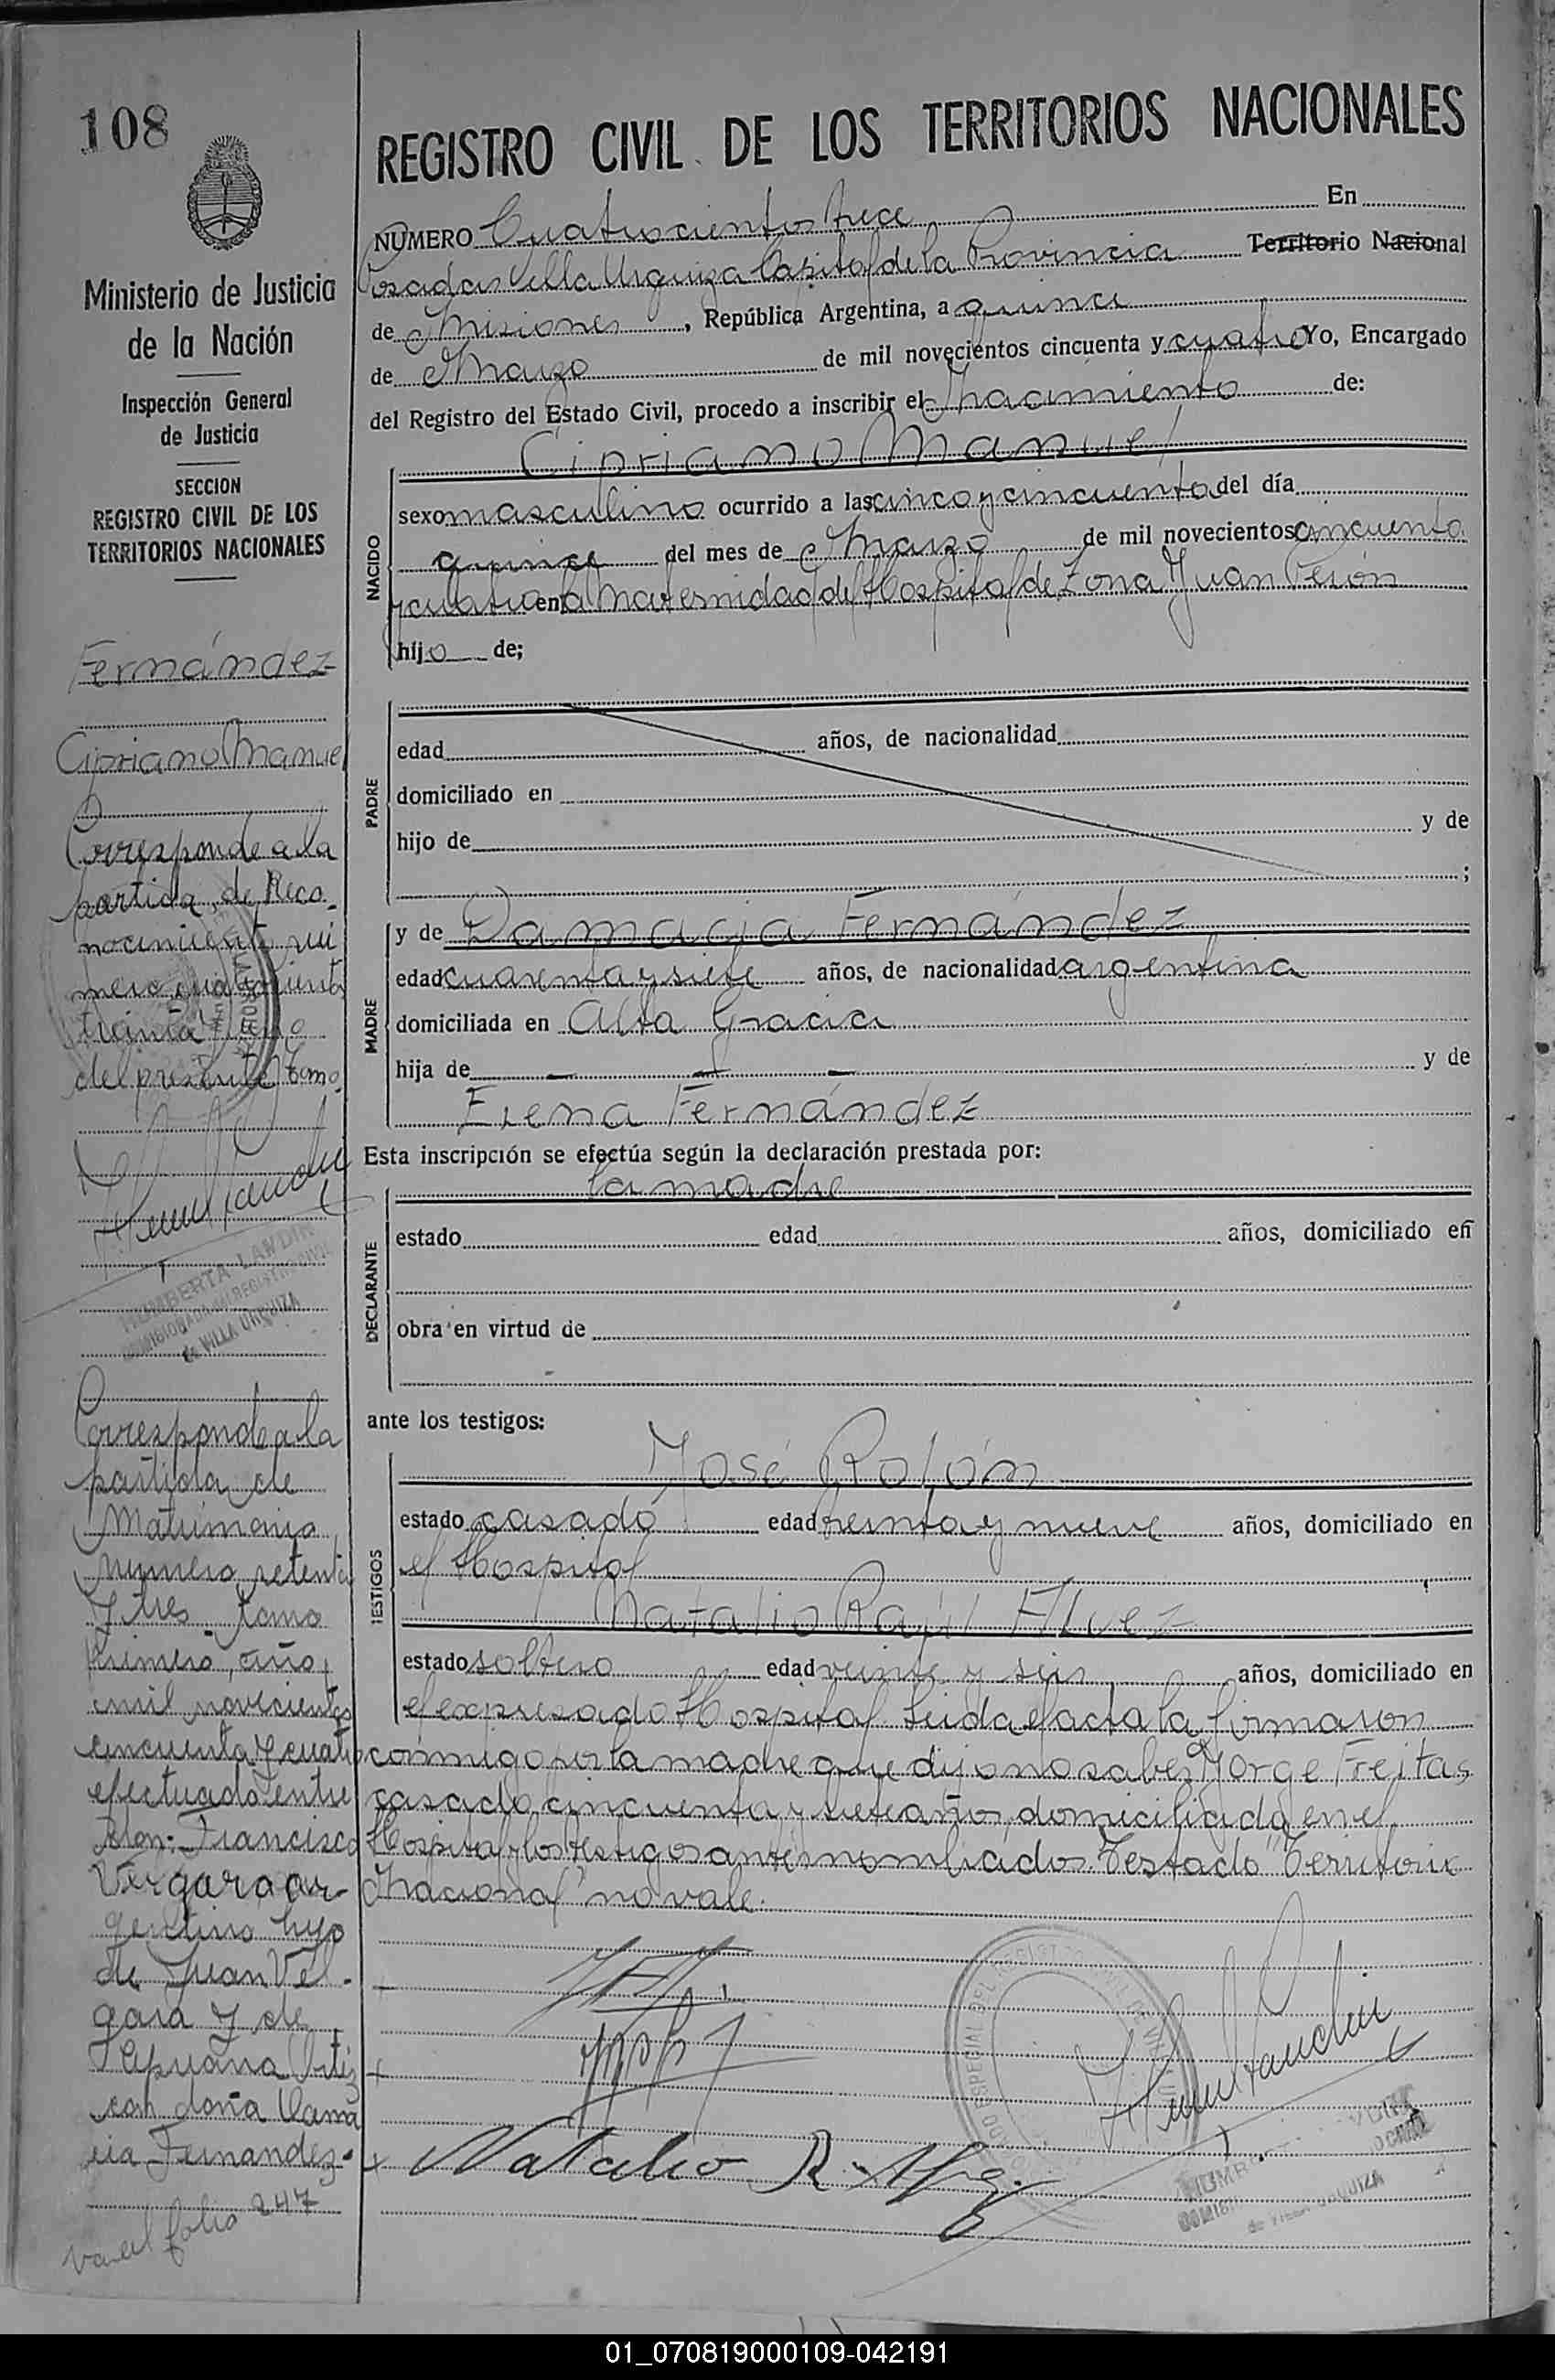 108
Ministerio de Justicia
de la Nación
Inspección General
de Justicia
SECCION
REGISTRO CIVIL DE LOS
TERRITORIOS NACIONALES
Fernández
Cipriano Manuel
Corresponde a la
partida de Reco-
nocimiento nú
mero cuatrocientos
treinta y uno
del presente tomo.
HUMBERTA LANDIN
COMISIONADA DEL REGISTRO CIVIL
de VILLA URQUIZA
Corresponde a la
partida de
Matrimonio
número setenta
y tres tomo
primero, año
mil novecientos
cincuenta y cuatro
efectuado entre
Don: Francisco
Vergara, ar-
gentino hijo
de Juan Ver-
gara y de
Ortiz
con doña Dama
cia Fernandez.
va al folio 247
REGISTRO CIVIL DE LOS TERRITORIOS NACIONALES
NUMERO Cuatrocientos trece En
Posadas Villa Urquiza Capital de la Provincia Territorio Nacional
de Misiones, República Argentina, a quince
de Marzo de mil novecientos cincuenta y cuatro Yo, Encargado
del Registro del Estado Civil, procedo a inscribir el Nacimiento de:
NACIDO
Cipriano Manuel
sexo masculino ocurrido a las cinco y cincuenta del día
quince del mes de Marzo de mil novecientos cincuenta
y cuatro en la Maternidad del Hospital de Zona Juan Perón
hijo de;
PADRE
edad años, de nacionalidad
domiciliado en
hijo de y de
;
MADRE
y de Damacia Fernández
edad cuarenta y siete años, de nacionalidad argentina
domiciliada en Alta Gracia
hija de - - - y de
Elena Fernández
Esta inscripción se efectúa según la declaración prestada por:
DECLARANTE
la madre
estado edad años, domiciliado en
obra en virtud de
ante los testigos:
TESTIGOS
José Rolón
estado casado edad treinta y nueve años, domiciliado en
el Hospital
Natalio Raúl Alvez
estado soltero edad veinte y seis años, domiciliado en
el expresado Hospital. Leida el acta la firmaron
conmigo por la madre que dijo no saber Jorge Freitas
casado, cincuenta y siete años, domiciliado en el
Hospital y los testigos antes nombrados. Testado "Territorio
Nacional" no vale.
Natalio R. Alvez
de VILLA URQUIZA
01_070819000109-042191